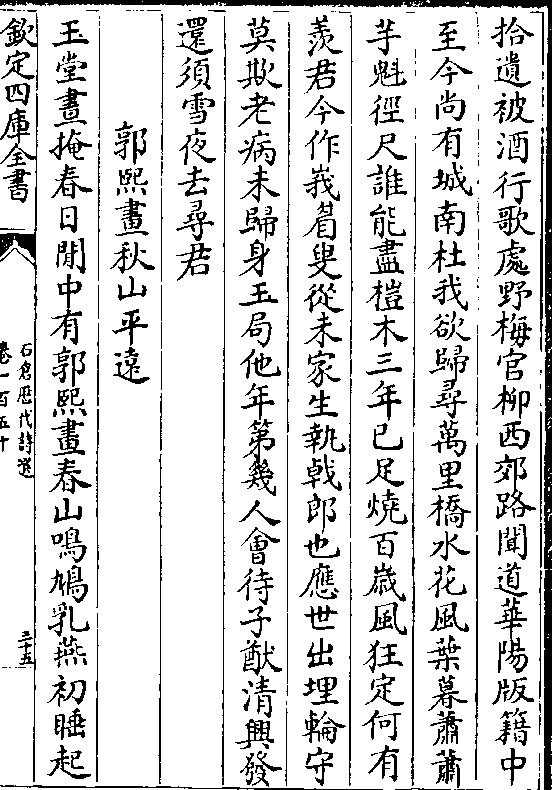 拾遺被酒行歌處野梅官柳西郊路聞道華陽版籍中
至今尚有城南杜我欲歸尋萬里橋水花風葉暮蕭蕭
芋魁徑尺誰能盡榿木三年已足燒百歳風狂定何有
羨君今作峩眉叟從未家生執戟郎也應世出埋輪守
莫欺老病未歸身玉局他年第幾人會待子猷清興發
還須雪夜去尋君
郭熙畫秋山平遠
玉堂晝掩春日閒中有郭熙畫春山鳴鳩乳燕初睡起
欽定四庫全書
石倉歴代詩選
卷一百五十
三十五